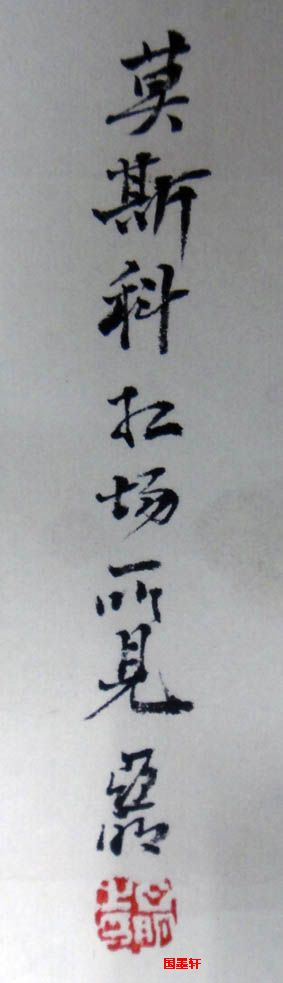 莫斯科红场所見 亞明
国墨轩